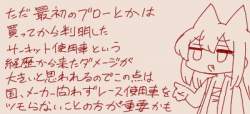 ただ最初のブローとかは
買ってから判明した
サーキット使用車という
経歴から来たダメージが
大きいと思われるのでこの点は
国、メーカー問わずレース使用車を
ツモらないことの方が重要かも